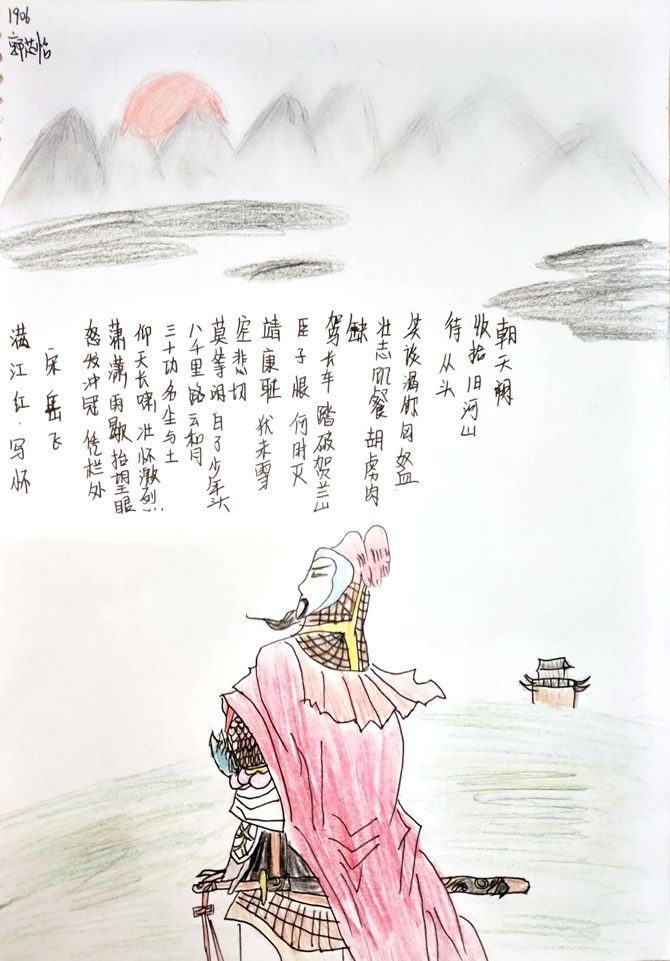 1906
满江红·写怀
宋 岳飞
怒发冲冠 凭栏处
潇潇雨歇 抬望眼
仰天长啸 壮怀激烈
三十功名尘与土
八千里路云和月
莫等闲 白了少年头
空悲切
靖康耻 犹未雪
臣子恨 何时灭
驾长车 踏破贺兰山
缺
壮志饥餐 胡虏肉
笑谈渴饮匈奴血
待 从头
收拾旧河山
朝天阙